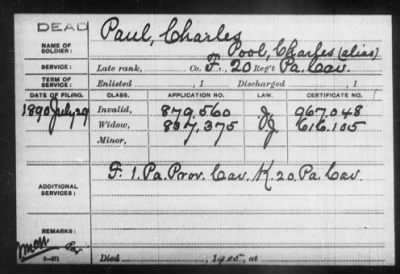 DEAD
Paul, Charles
NAME OF SOLDIER:
Pool, Charles (alias)
SERVICE: Late rank, Co. F. 20 Reg't Pa. Cav.
TERM OF SERVICE: Enlisted , 1 Discharged , 1
DATE OF FILING. CLASS. APPLICATION NO. LAW. CERTIFICATE NO.
1890 July 29 Invalid, 879.560 967.048
Widow, 837,375 616.105
Minor,
ADDITIONAL SERVICES: F. 1. Pa. Prov. Cav. K. 20. Pa. Cav.
REMARKS:
Died , 1 , at